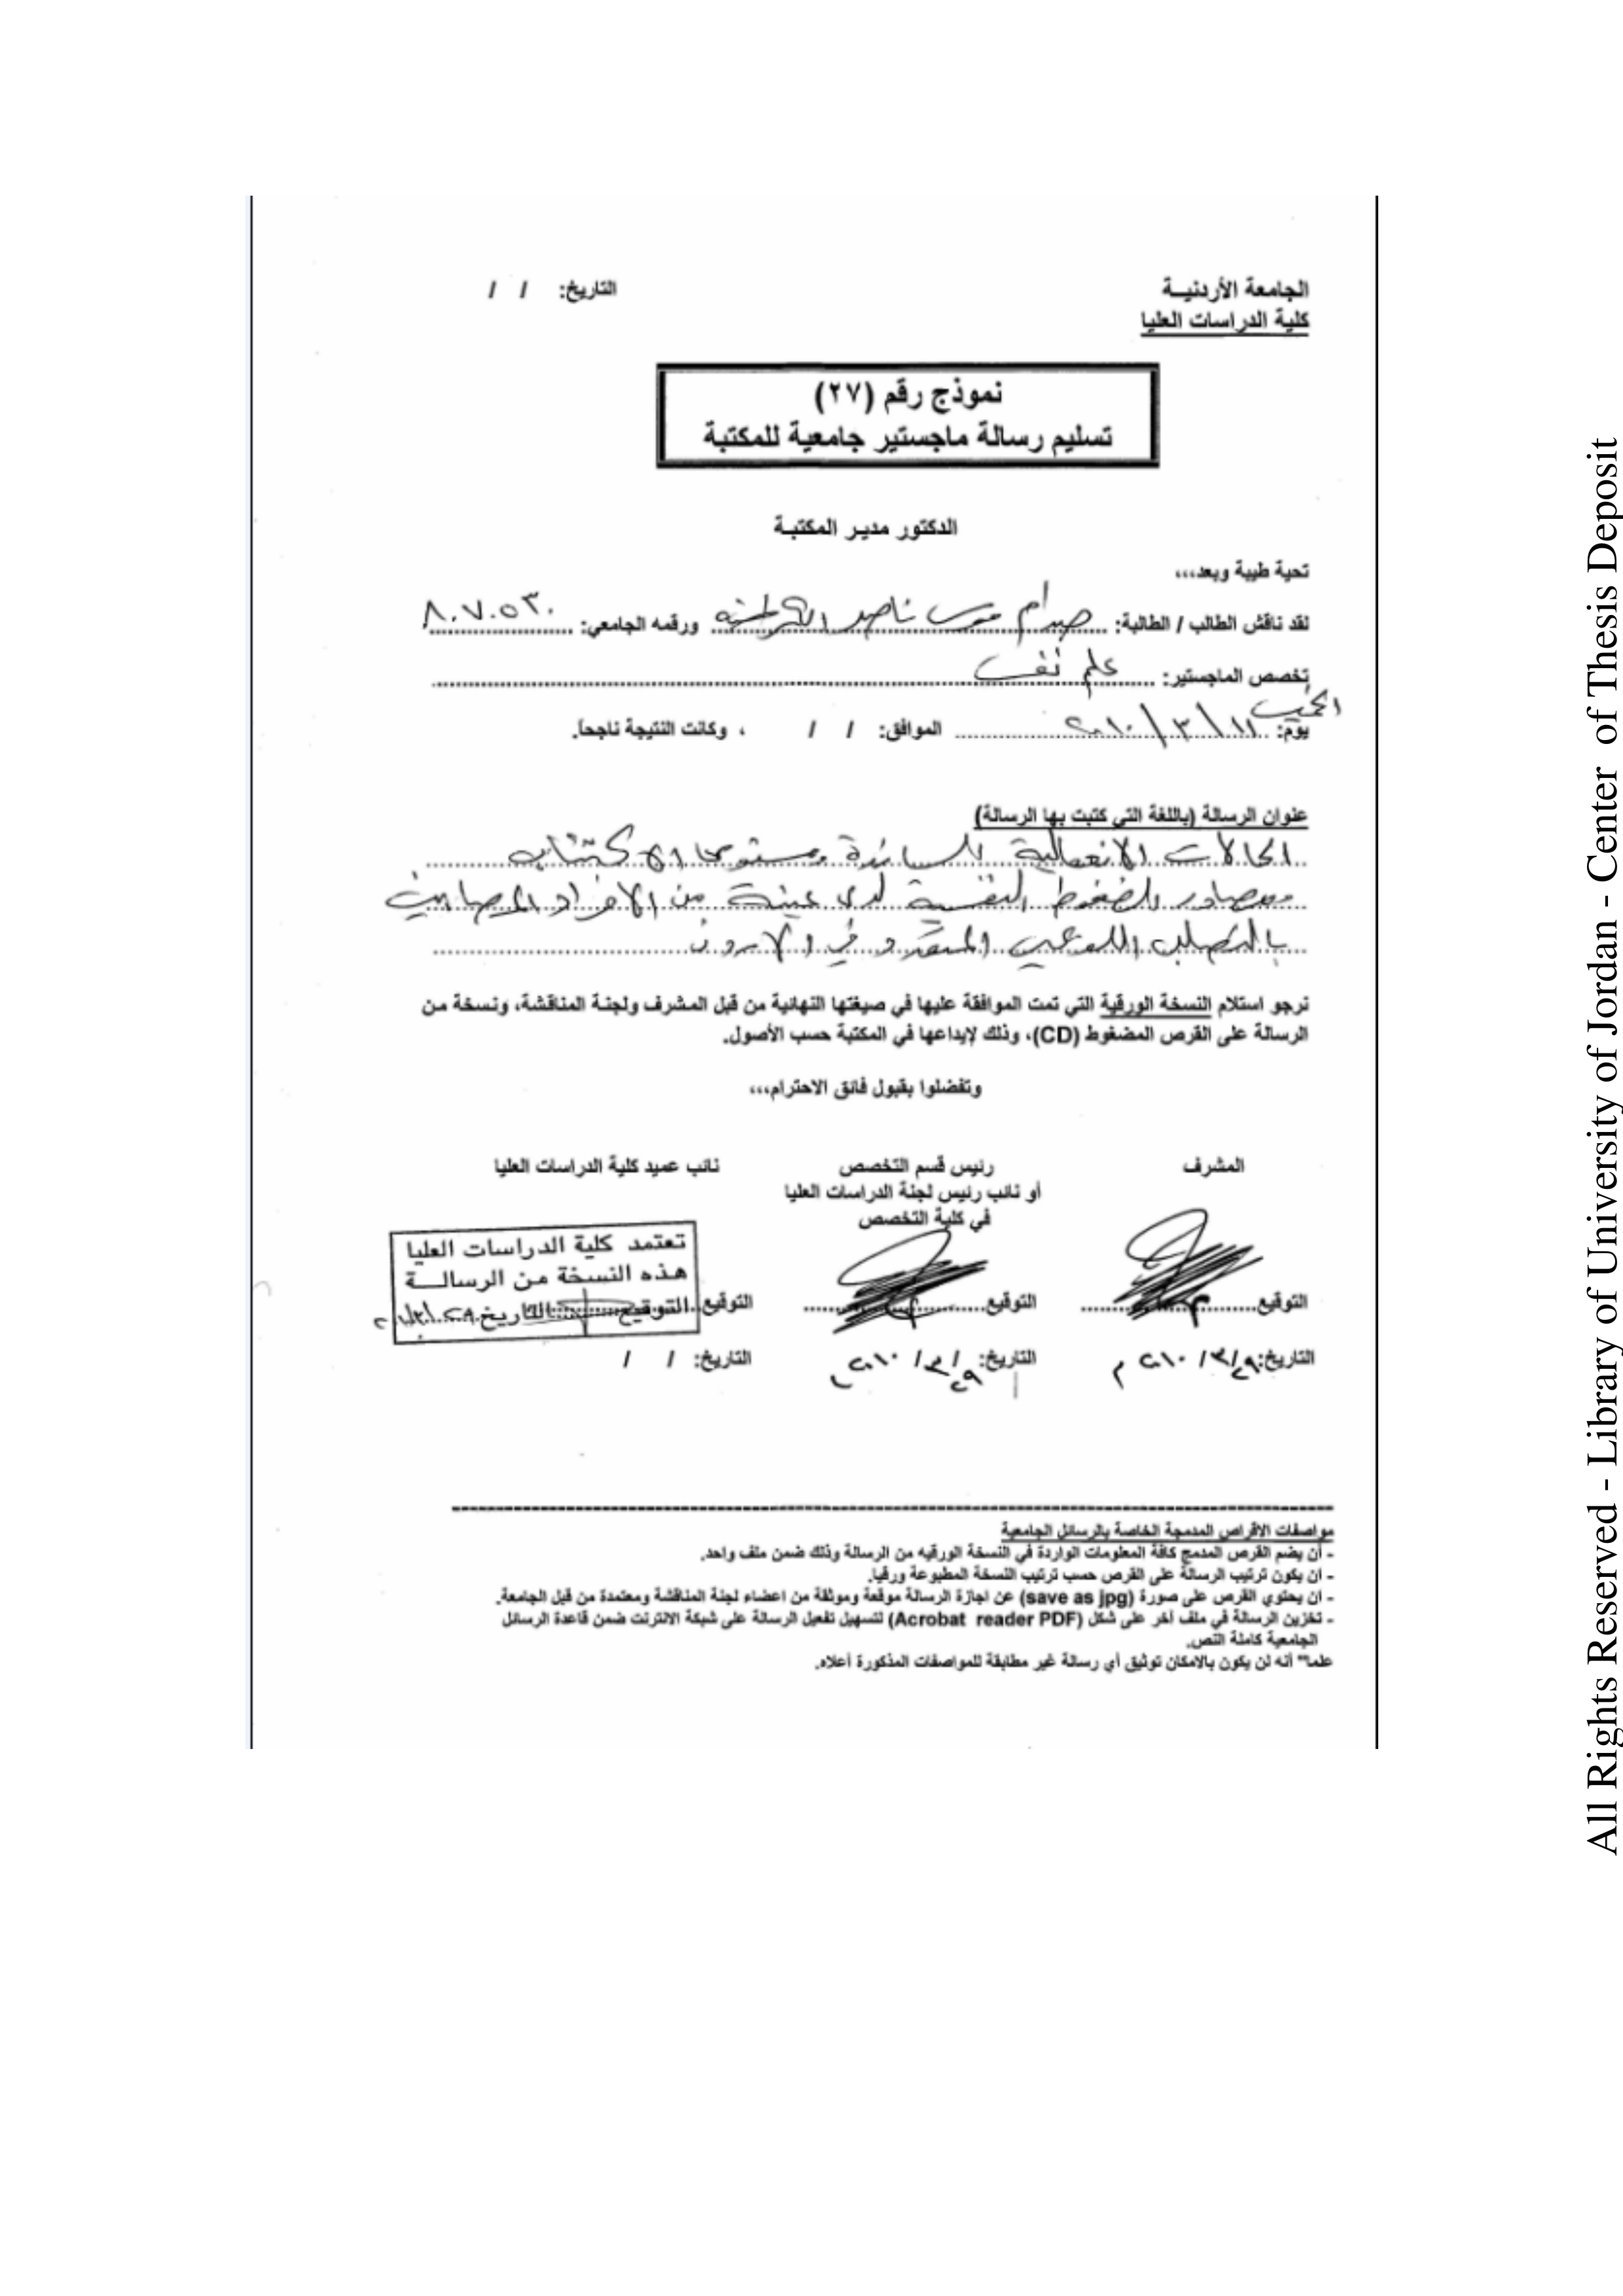 الجامعة الأردنيــة
التاريخ: / /
كلية الدراسات العليا
نموذج رقم (٢٧)
تسليم رسالة ماجستير جامعية للمكتبة
الدكتور مدير المكتبة
تحية طيبة وبعد،،،
لقد ناقش الطالب / الطالبة: صدام موسى ناصر ورقمه الجامعي: ٨٠٧٠٥٣٠
تخصص الماجستير: علم نفس
الخميس
يوم: ١١/٣/٢٠١٠ الموافق: / / ، وكانت النتيجة ناجحاً.
عنوان الرسالة (باللغة التي كتبت بها الرسالة)
الحالات الانفعالية السائدة ومستوى الاكتئاب
ومصادر الضغوط النفسية لدى عينة من الافراد المصابين
بالتصلب اللويحي المتعدد في الاردن
نرجو استلام النسخة الورقية التي تمت الموافقة عليها في صيغتها النهائية من قبل المشرف ولجنة المناقشة، ونسخة من
الرسالة على القرص المضغوط (CD)، وذلك لإيداعها في المكتبة حسب الأصول.
وتفضلوا بقبول فائق الاحترام،،،
المشرف
رئيس قسم التخصص
أو نائب رئيس لجنة الدراسات العليا
في كلية التخصص
نائب عميد كلية الدراسات العليا
تعتمد كلية الدراسات العليا
هذه النسخة من الرسالـــة
التوقيع التاريخ
التوقيع التوقيع التوقيع
التاريخ: ٢٩/٣/٢٠١٠ م التاريخ: ٢٩/٣/٢٠١٠ التاريخ: / /
مواصفات الاقراص المدمجة الخاصة بالرسائل الجامعية
- أن يضم القرص المدمج كافة المعلومات الواردة في النسخة الورقيه من الرسالة وذلك ضمن ملف واحد.
- ان يكون ترتيب الرسالة على القرص حسب ترتيب النسخة المطبوعة ورقيا.
- ان يحتوي القرص على صورة (save as jpg) عن اجازة الرسالة موقعة وموثقة من اعضاء لجنة المناقشة ومعتمدة من قبل الجامعة.
- تخزين الرسالة في ملف آخر على شكل (Acrobat reader PDF) لتسهيل تفعيل الرسالة على شبكة الانترنت ضمن قاعدة الرسائل
الجامعية كاملة النص.
علما" أنه لن يكون بالامكان توثيق أي رسالة غير مطابقة للمواصفات المذكورة أعلاه.
All Rights Reserved - Library of University of Jordan - Center of Thesis Deposit